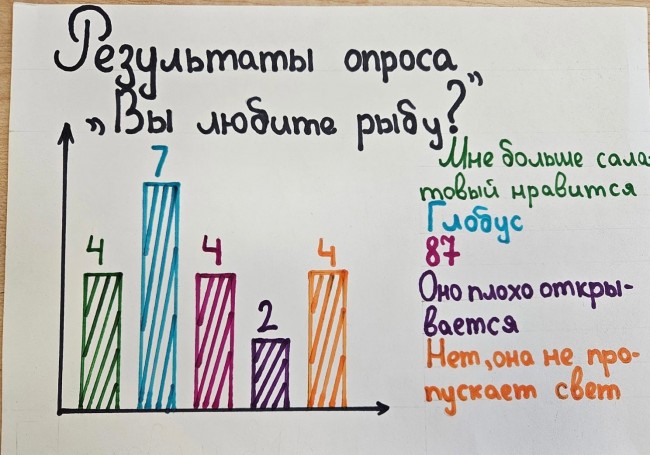 Результаты опроса
„Вы любите рыбу?”
7
4
4
4
2
Мне больше сала-
товый нравится
Глобус
87
Оно плохо откры-
вается
Нет, она не про-
пускает свет